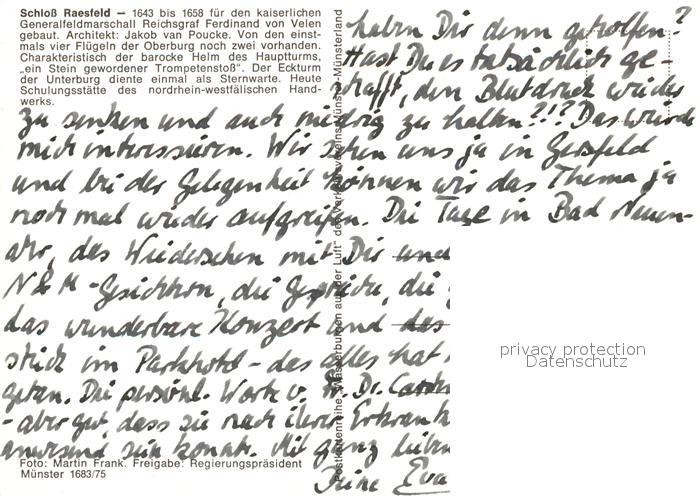 Schloß Raesfeld — 1643 bis 1658 für den kaiserlichen
Generalfeldmarschall Reichsgraf Ferdinand von Velen
gebaut. Architekt: Jakob van Poucke. Von den einst-
mals vier Flügeln der Oberburg noch zwei vorhanden.
Charakteristisch der barocke Helm des Hauptturms,
„ein Stein gewordener Trompetenstoß". Der Eckturm
der Unterburg diente einmal als Sternwarte. Heute
Schulungsstätte des nordrhein-westfälischen Hand-
werks.
haben Dir denn geholfen?
Hast Du es tatsächlich ge-
schafft, den Blutdruck wieder
zu senken und auch niedrig zu halten?!? Das würde
mich interessieren. Wir sehen uns ja in Gersfeld
und bei der Gelegenheit können wir das Thema ja
noch mal wieder aufgreifen. Die Tage in Bad Neuen-
ahr, das Wiedersehen mit Dir und
N & M - Gesichtern, die Gespräche, die
das wunderbare Konzert und das
stück im Parkhotel - das alles hat
getan. Die persönl. Worte v. Dr.
- aber gut, dass sie nach ihrer Erkrank
anwesend sein konnte. Mit ganz lieben
Deine Eva
Postkartenreihe „Wasserburgen aus der Luft" des Verkehrsvereins Münster-Münsterland
Foto: Martin Frank. Freigabe: Regierungspräsident
Münster 1683/75
privacy protection
Datenschutz